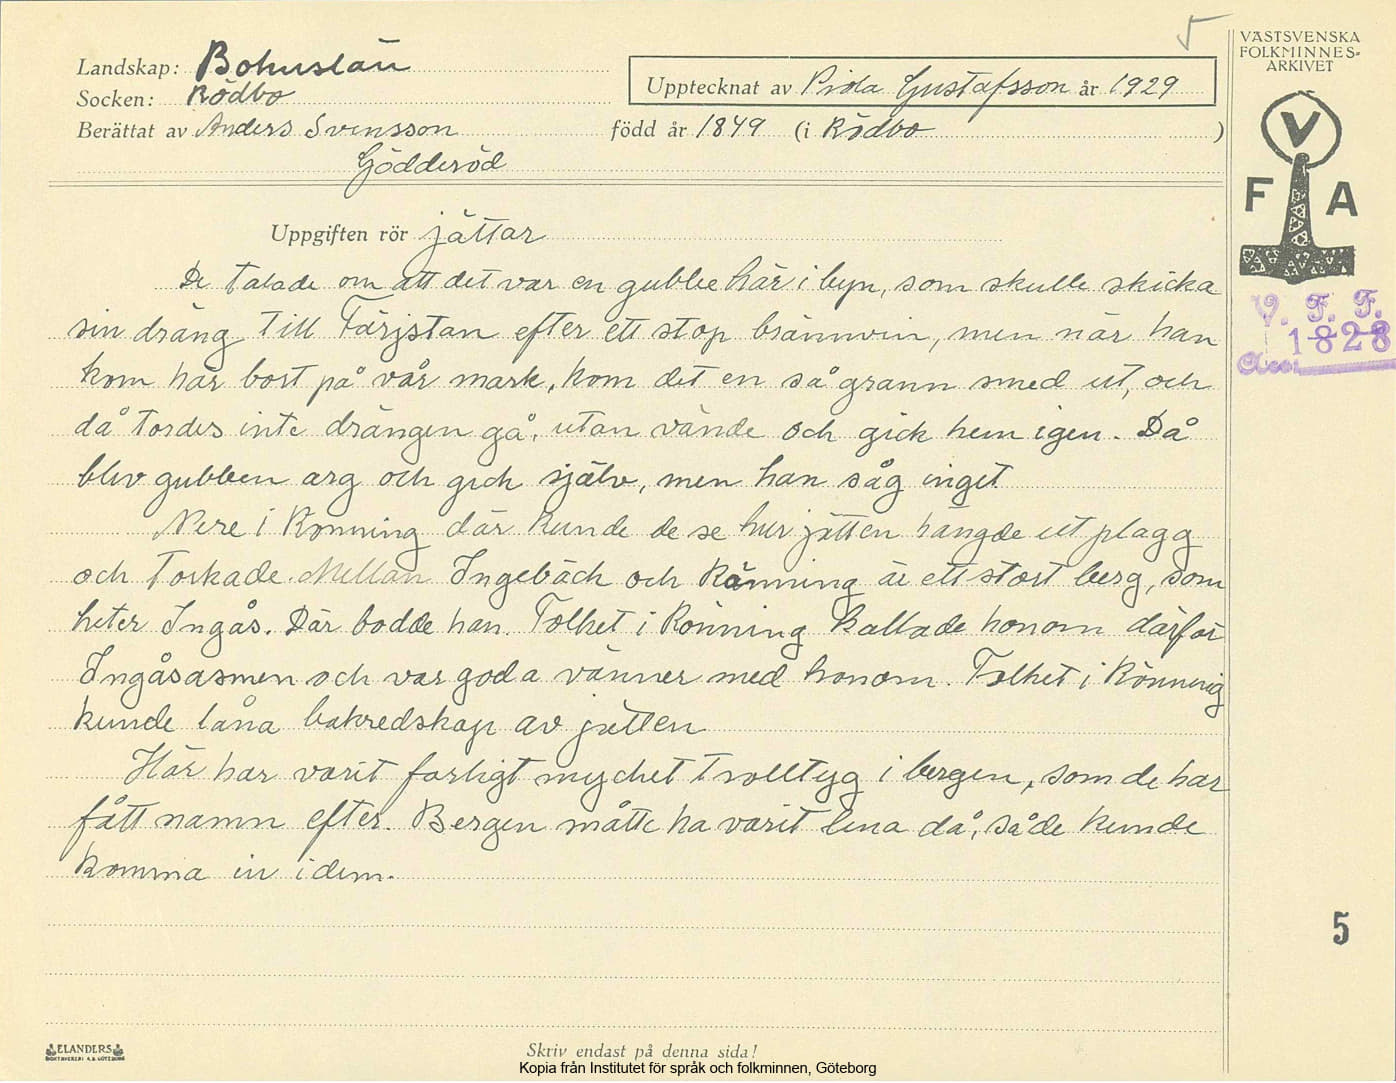 5
VÄSTSVENSKA
FOLKMINNES-
ARKIVET
Landskap: Bohuslän
Socken: Rödbo
Upptecknat av Frida Gustafsson år 1929
Berättat av Anders Svensson född år 1849 (i Rödbo )
Gödderöd
V
F A
V. F. F.
1828
Acc:
Uppgiften rör jättar
De talade om att det var en gubbe här i byn, som skulle skicka
sin dräng till Färjstan efter ett stop brännvin, men när han
kom här bort på vår mark, kom det en så grann smed ut, och
då tordes inte drängen gå, utan vände och gick hem igen. Då
blev gubben arg och gick själv, men han såg inget
Nere i Rönning där kunde de se hur jätten hängde ut plagg
och torkade. Mellan Ingebäck och Rönning är ett stort berg, som
heter Ingås. Där bodde han. Folket i Rönning kallade honom därför
Ingåsasmen och var goda vänner med honom. Folket i Rönning
kunde låna bakredskap av jätten
Här har varit farligt mycket trolltyg i bergen, som de har
fått namn efter. Bergen måtte ha varit lena då, så de kunde
komma in i dem.
5
ELANDERS
BOKTRYCKERI A.B. GÖTEBORG
Skriv endast på denna sida!
Kopia från Institutet för språk och folkminnen, Göteborg